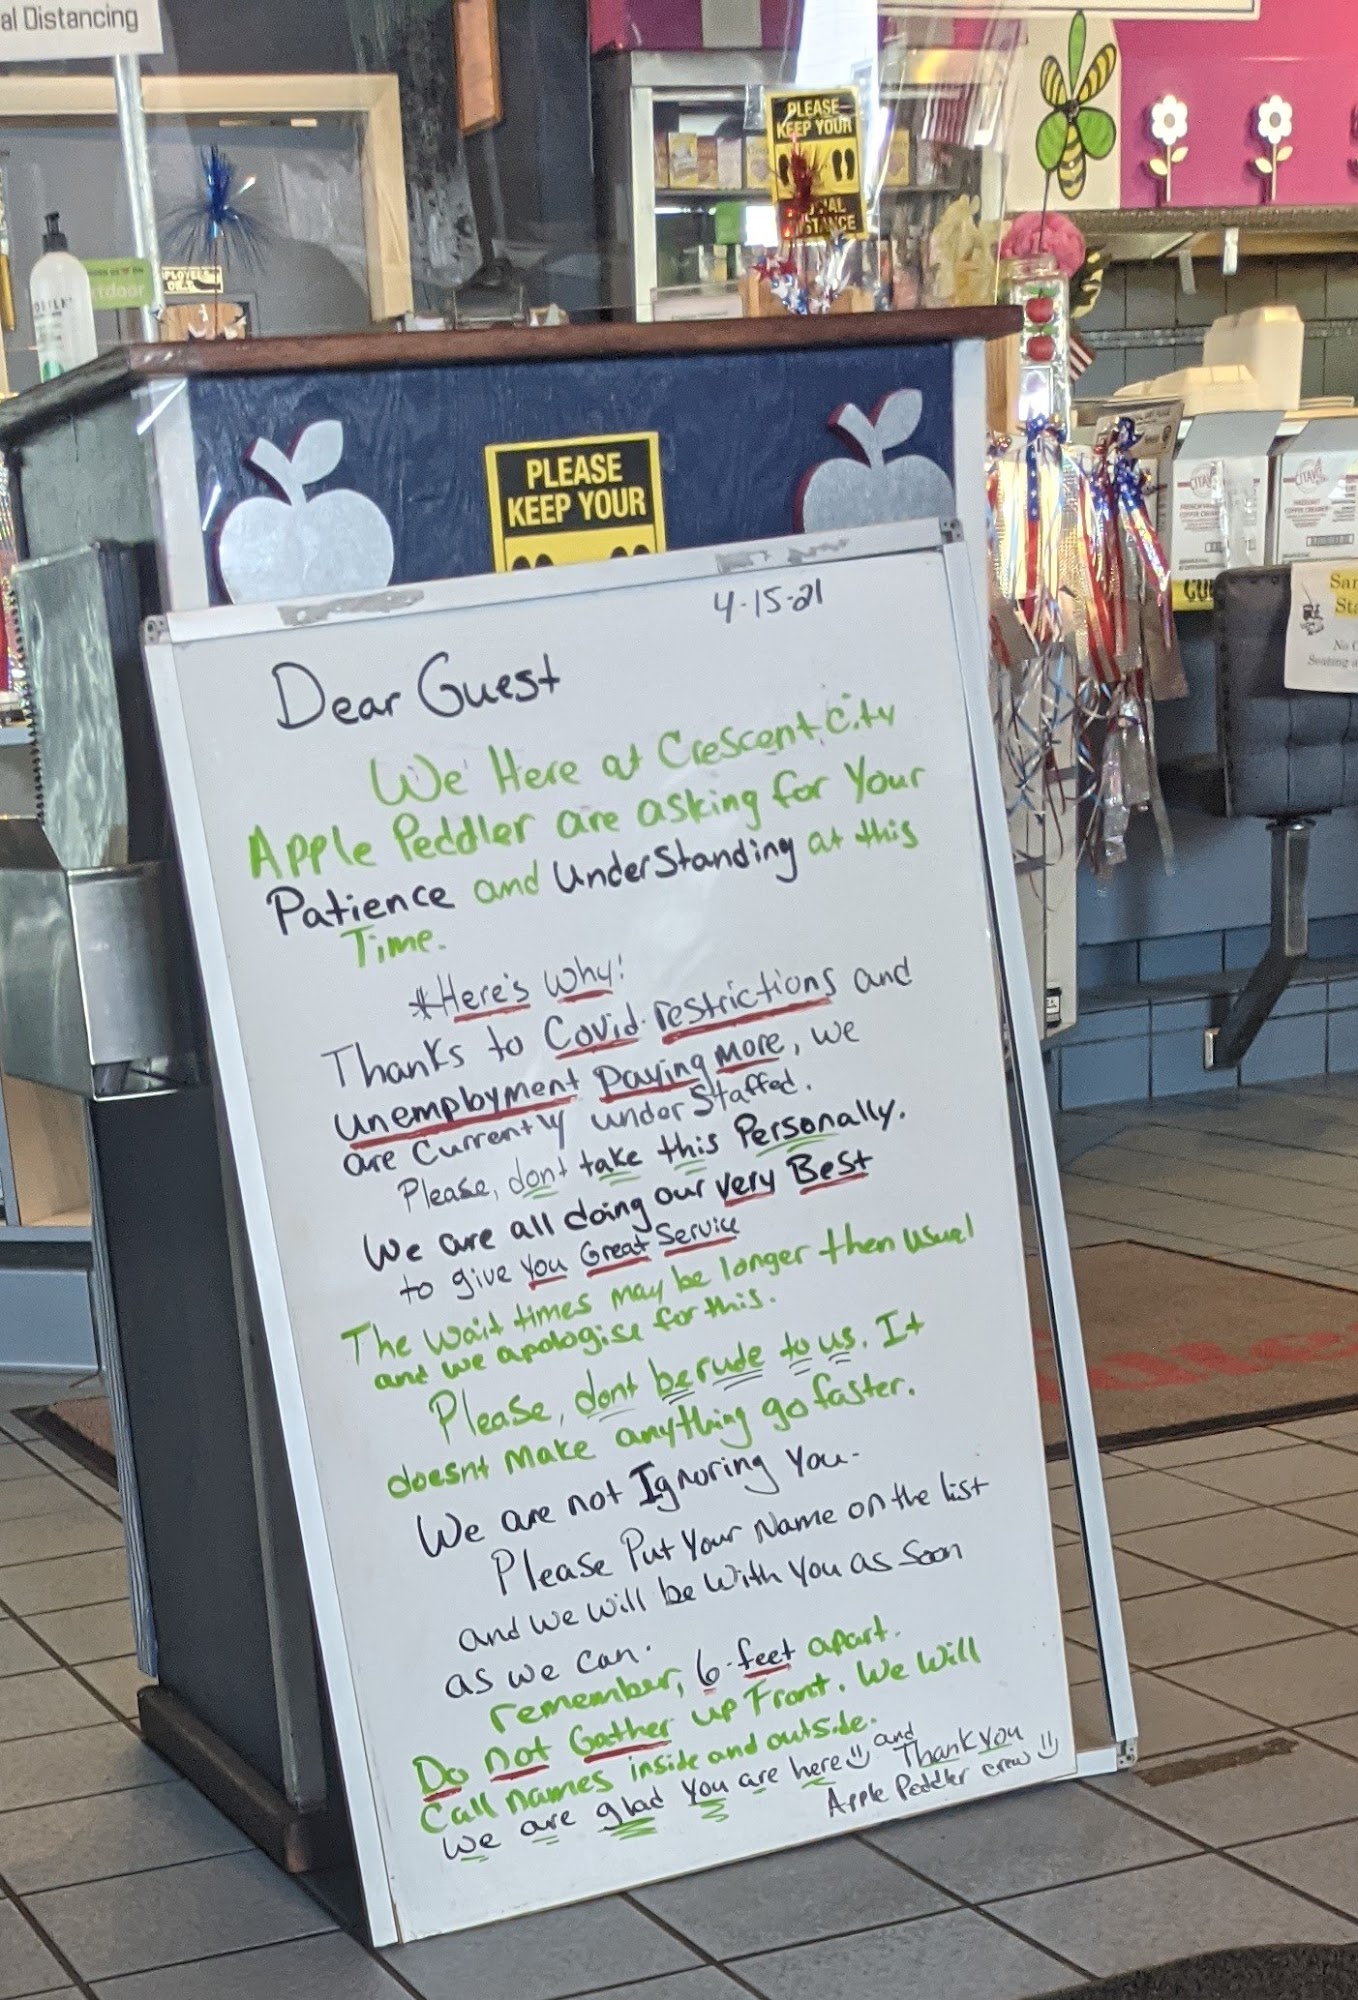 al Distancing
PLEASE
KEEP YOUR
PLEASE
KEEP YOUR
4-15-21
Dear Guest
We Here at Crescent City
Apple Peddler are asking for Your
Patience and UnderStanding at this
Time.
*Here's Why!
Thanks to Covid restrictions and
unemployment paying more, we
are Currently underStaffed.
Please, dont take this Personally.
We are all doing our very Best
to give you Great Service
The Wait times may be longer then usual
and we apologise for this.
Please, dont be rude to us. It
doesnt Make anything go faster.
We are not Ignoring You.
Please Put Your Name on the list
and we will be With You as Soon
as we can.
remember, 6-feet apart.
Do not Gather up Front. We Will
Call names inside and outside.
We are glad you are here and Thank you
Apple Peddler crew